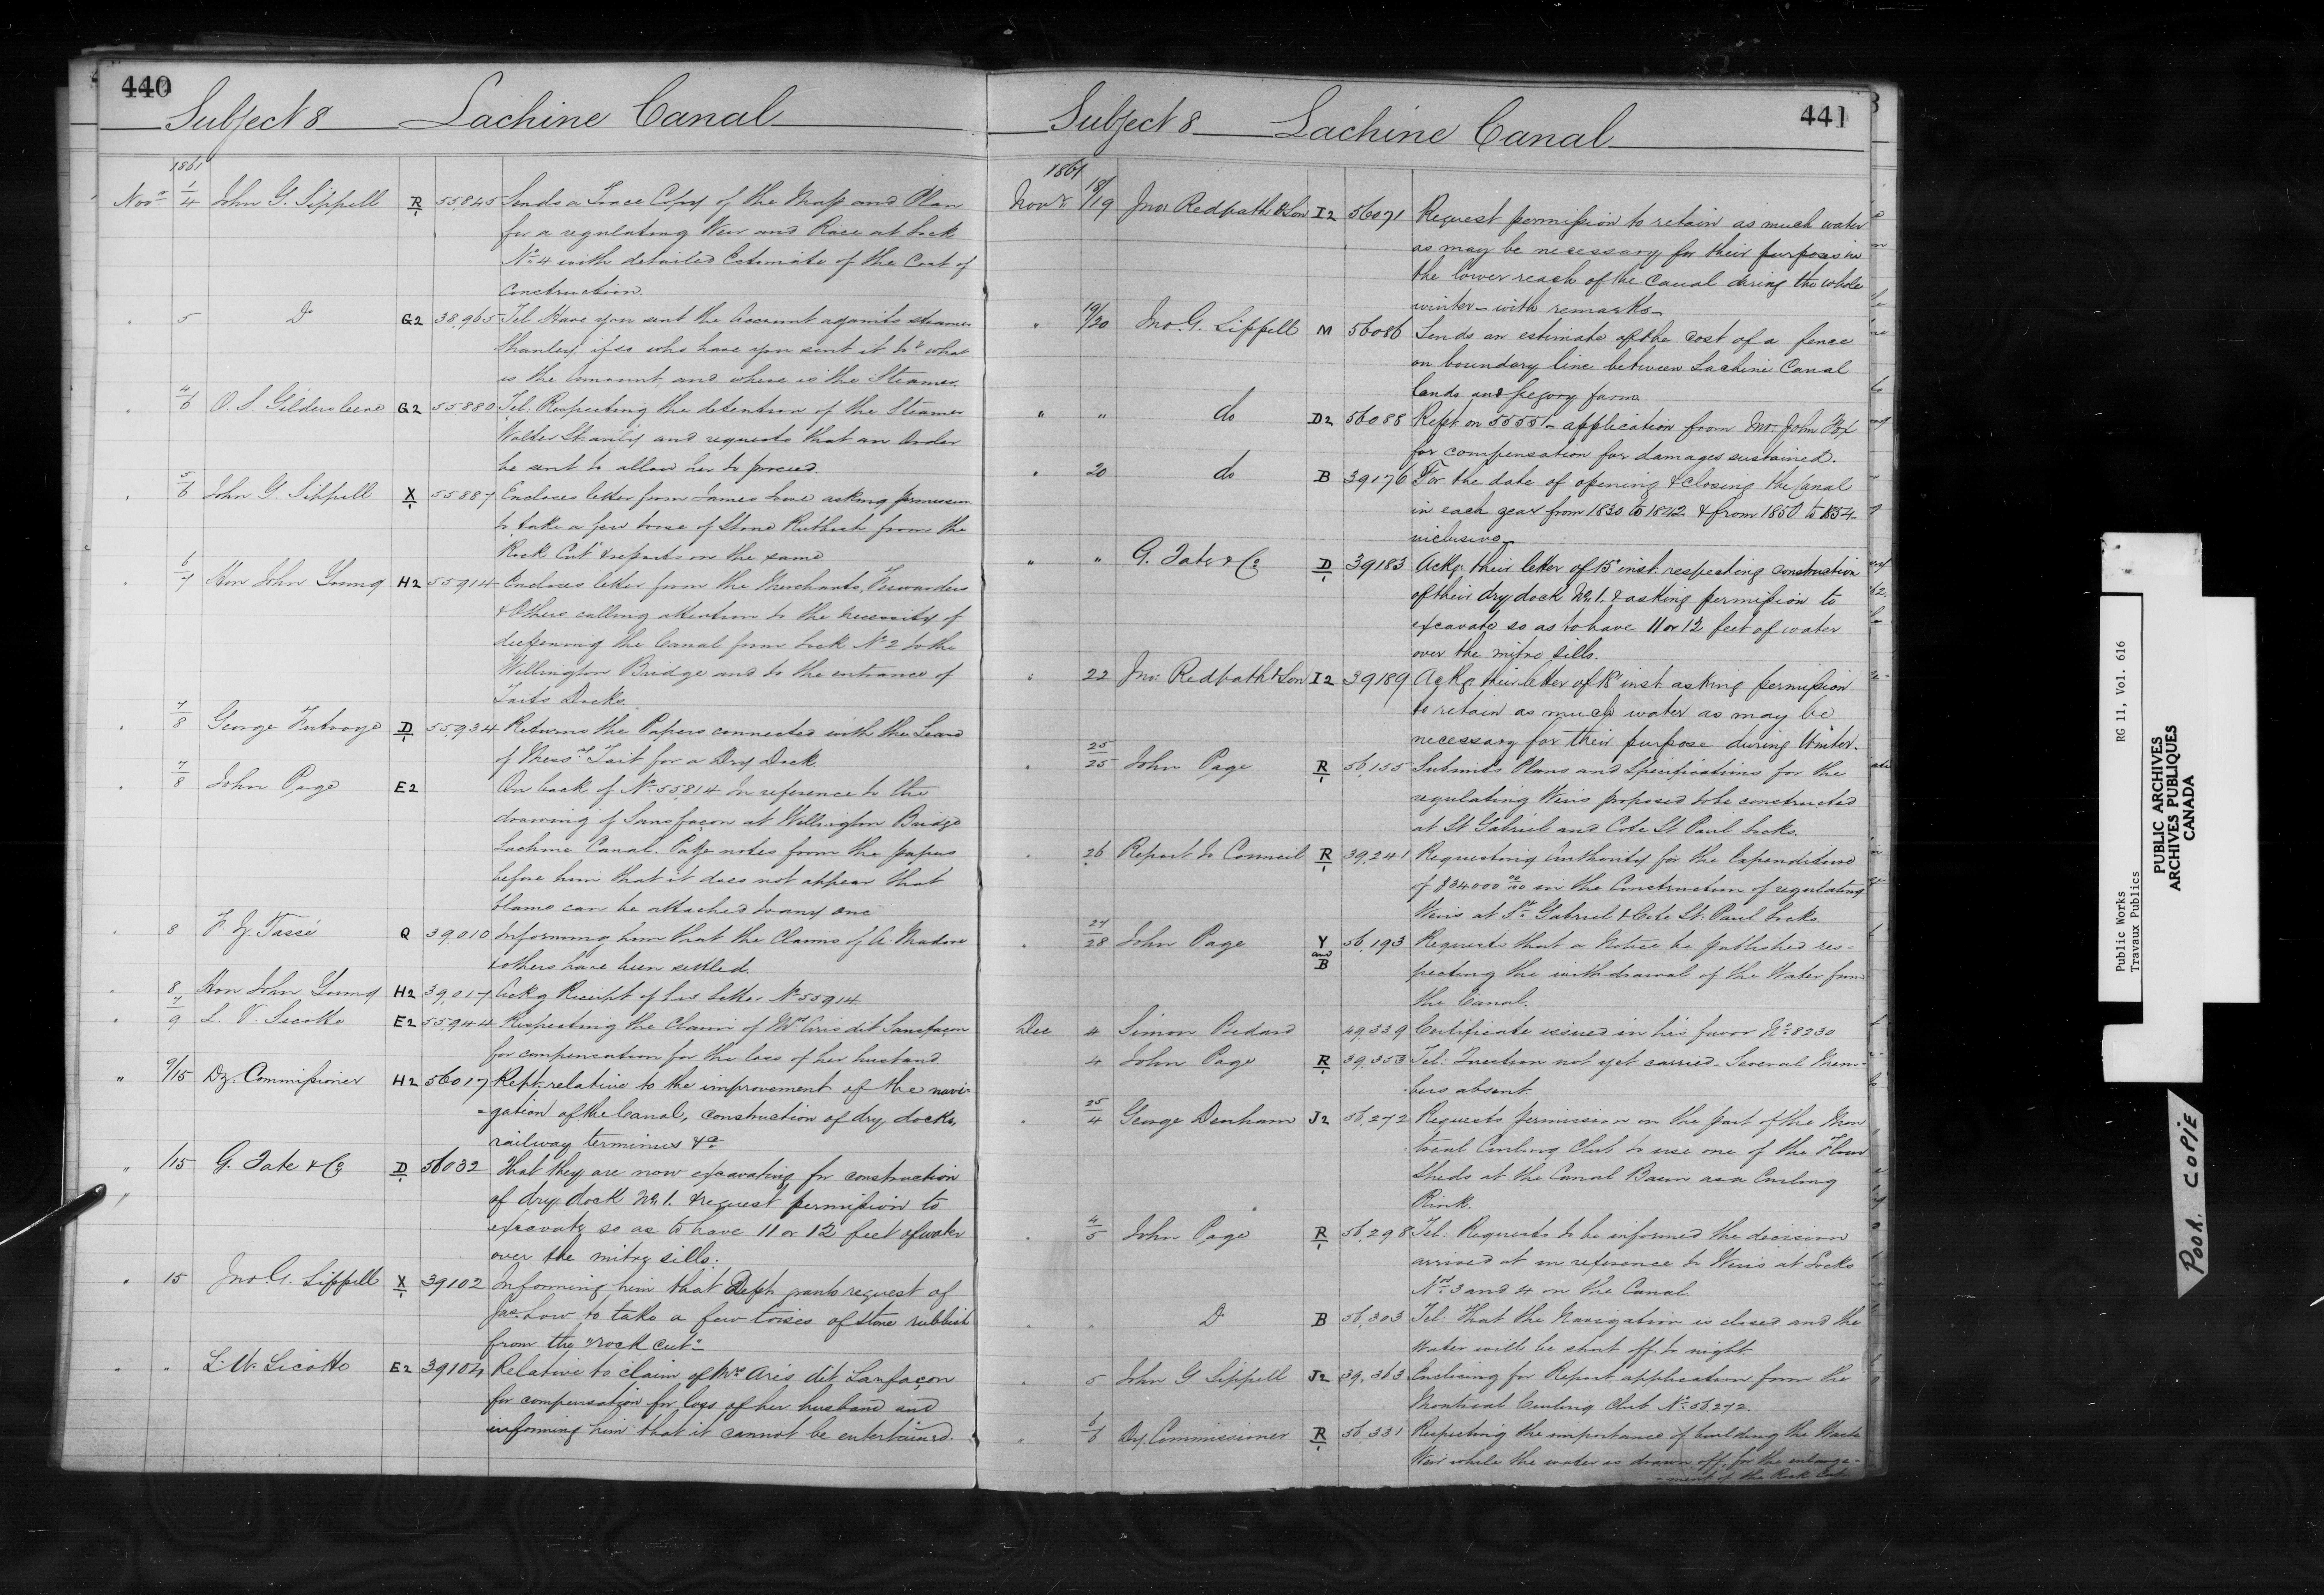 440
Subject 8 Lachine Canal
1861
Novr 1/4 John G. Sippell R 55,845 Sends a Trace Copy of the Map and Plan
for a regulating Weir and Race at Lock
No 4 with detailed Estimate of the Cost of
Construction.
" 5 Do G2 38,965 Tel. Have you sent the Account against steamer
Stanley, if so who have you sent it to & what
is the amount, and where is the Steamer.
" 4/6 O. S. Gildersleeve G2 55880 Tel: Respecting the detention of the Steamer
Walter Stanley and requests that an Order
be sent to allow her to proceed.
" 5/6 John G. Sippell X 55887 Encloses letter from James Howe asking permission
to take a few toise of Stone Rubbish from the
Rock Cut & reports on the same
" 6/7 Hon John Young H2 55914 Encloses letter from the Merchants, Forwarders
& Others calling attention to the necessity of
deepening the Canal from Lock No 2 to the
Wellington Bridge and to the entrance of
Taits Docks.
" 7/8 George D 55,934 Returns the Papers connected with the Lease
of Messrs Tait for a Dry Dock.
" 7/8 John Page E2 On back of No 55814 In reference to the
drowning of Sansfaçon at Wellington Bridge
Lachine Canal. Page notes from the papers
before him that it does not appear that
blame can be attached to any one
" 8 F. Z. Tassé Q 39,010 Informing him that the Claims of A. Madore
& others have been settled.
" 8 Hon John Young H2 39,017 Ackg Receipt of his letter No 55914
" 7/9 L. V. Sicotte E2 55944 Respecting the Claim of Mrs Aris dit Sansfaçon
for compensation for the loss of her husband
" 9/15 Dy. Commissioner H2 56017 Rept. relative to the improvement of the navi-
-gation of the Canal, construction of dry docks,
railway terminus &a
" /15 G. Tate & Co D 56032 That they are now excavating for construction
of dry dock No 1. & request permission to
excavate so as to have 11 or 12 feet of water
over the mitre sills.
" 15 Jno G. Sippell X 39102 Informing him that Dept. grants request of
Jas. Low to take a few toises of Stone rubbish
from the "rock cut"
" " L. V. Sicotte E2 39104 Relative to claim of Mrs Aris dit Sanfaçon
for compensation for loss of her husband and
informing him that it cannot be entertained.
441
Subject 8 Lachine Canal
1861
Novr 18/19 Jno. Redpath & Son I2 56071 Request permission to retain as much water
as may be necessary for their purposes in
the lower reach of the Canal during the whole
winter - with remarks -
" 19/20 Jno. G. Sippell M 56086 Sends an estimate of the cost of a fence
on boundary line between Lachine Canal
lands and Gregory farm
" " do D2 56088 Rept. on 55551 - application from Mr. John Fox
for compensation for damages sustained.
" 20 do B 39176 For the date of opening & closing the Canal
in each year from 1830 to 1842 & from 1850 to 1854
inclusive
" " G. Tate & Co D 39183 Ackg. their letter of 15 inst. respecting construction
of their dry dock No 1. & asking permission to
excavate so as to have 11 or 12 feet of water
over the mitre sills.
" 22 Jno: Redpath & Son I2 39189 Ackg. their letter of 18 inst. asking permission
to retain as much water as may be
necessary for their purpose during Winter.
" 25/25 John Page R 56,155 Submits Plans and Specifications for the
regulating Weirs proposed to be constructed
at St Gabriel and Cote St Paul Locks.
" 26 Report to Council R 39,241 Requesting Authority for the Expenditure
of $34000 00/100 in the Construction of regulating
Weirs at St Gabriel & Cote St Paul Locks
" 27/28 John Page Y and B 56,193 Requests that a Notice be published res-
pecting the withdrawal of the Water from
the Canal.
Dec 4 Simon Bedard 49,339 Certificate issued in his favor No 8230
4 John Page R 39,353 Tel: Direction not yet carried - Several Mem-
bers absent
" 25/4 George Denham J2 56,272 Requests permission on the part of the Mon
treal Curling Club to use one of the Flour
Sheds at the Canal Basin as a Curling
Rink.
" 4/5 John Page R 56,298 Tel: Requests to be informed the decision
arrived at in reference to Weirs at Locks
Nos 3 and 4 on the Canal
" " Do B 56,303 Tel: That the Navigation is closed and the
Water will be shut off to night
" 5 John G Sippell J2 39,363 Enclosing for Report application from the
Montreal Curling Club No 56,272.
" 6/6 Dy. Commissioner R 56,331 Respecting the importance of building the Waste
Weir while the water is drawn off, for the enlarge-
-ment of the Rock Cut
Public Works RG 11, Vol. 616
Travaux Publics
PUBLIC ARCHIVES
ARCHIVES PUBLIQUES
CANADA
POOR COPIE